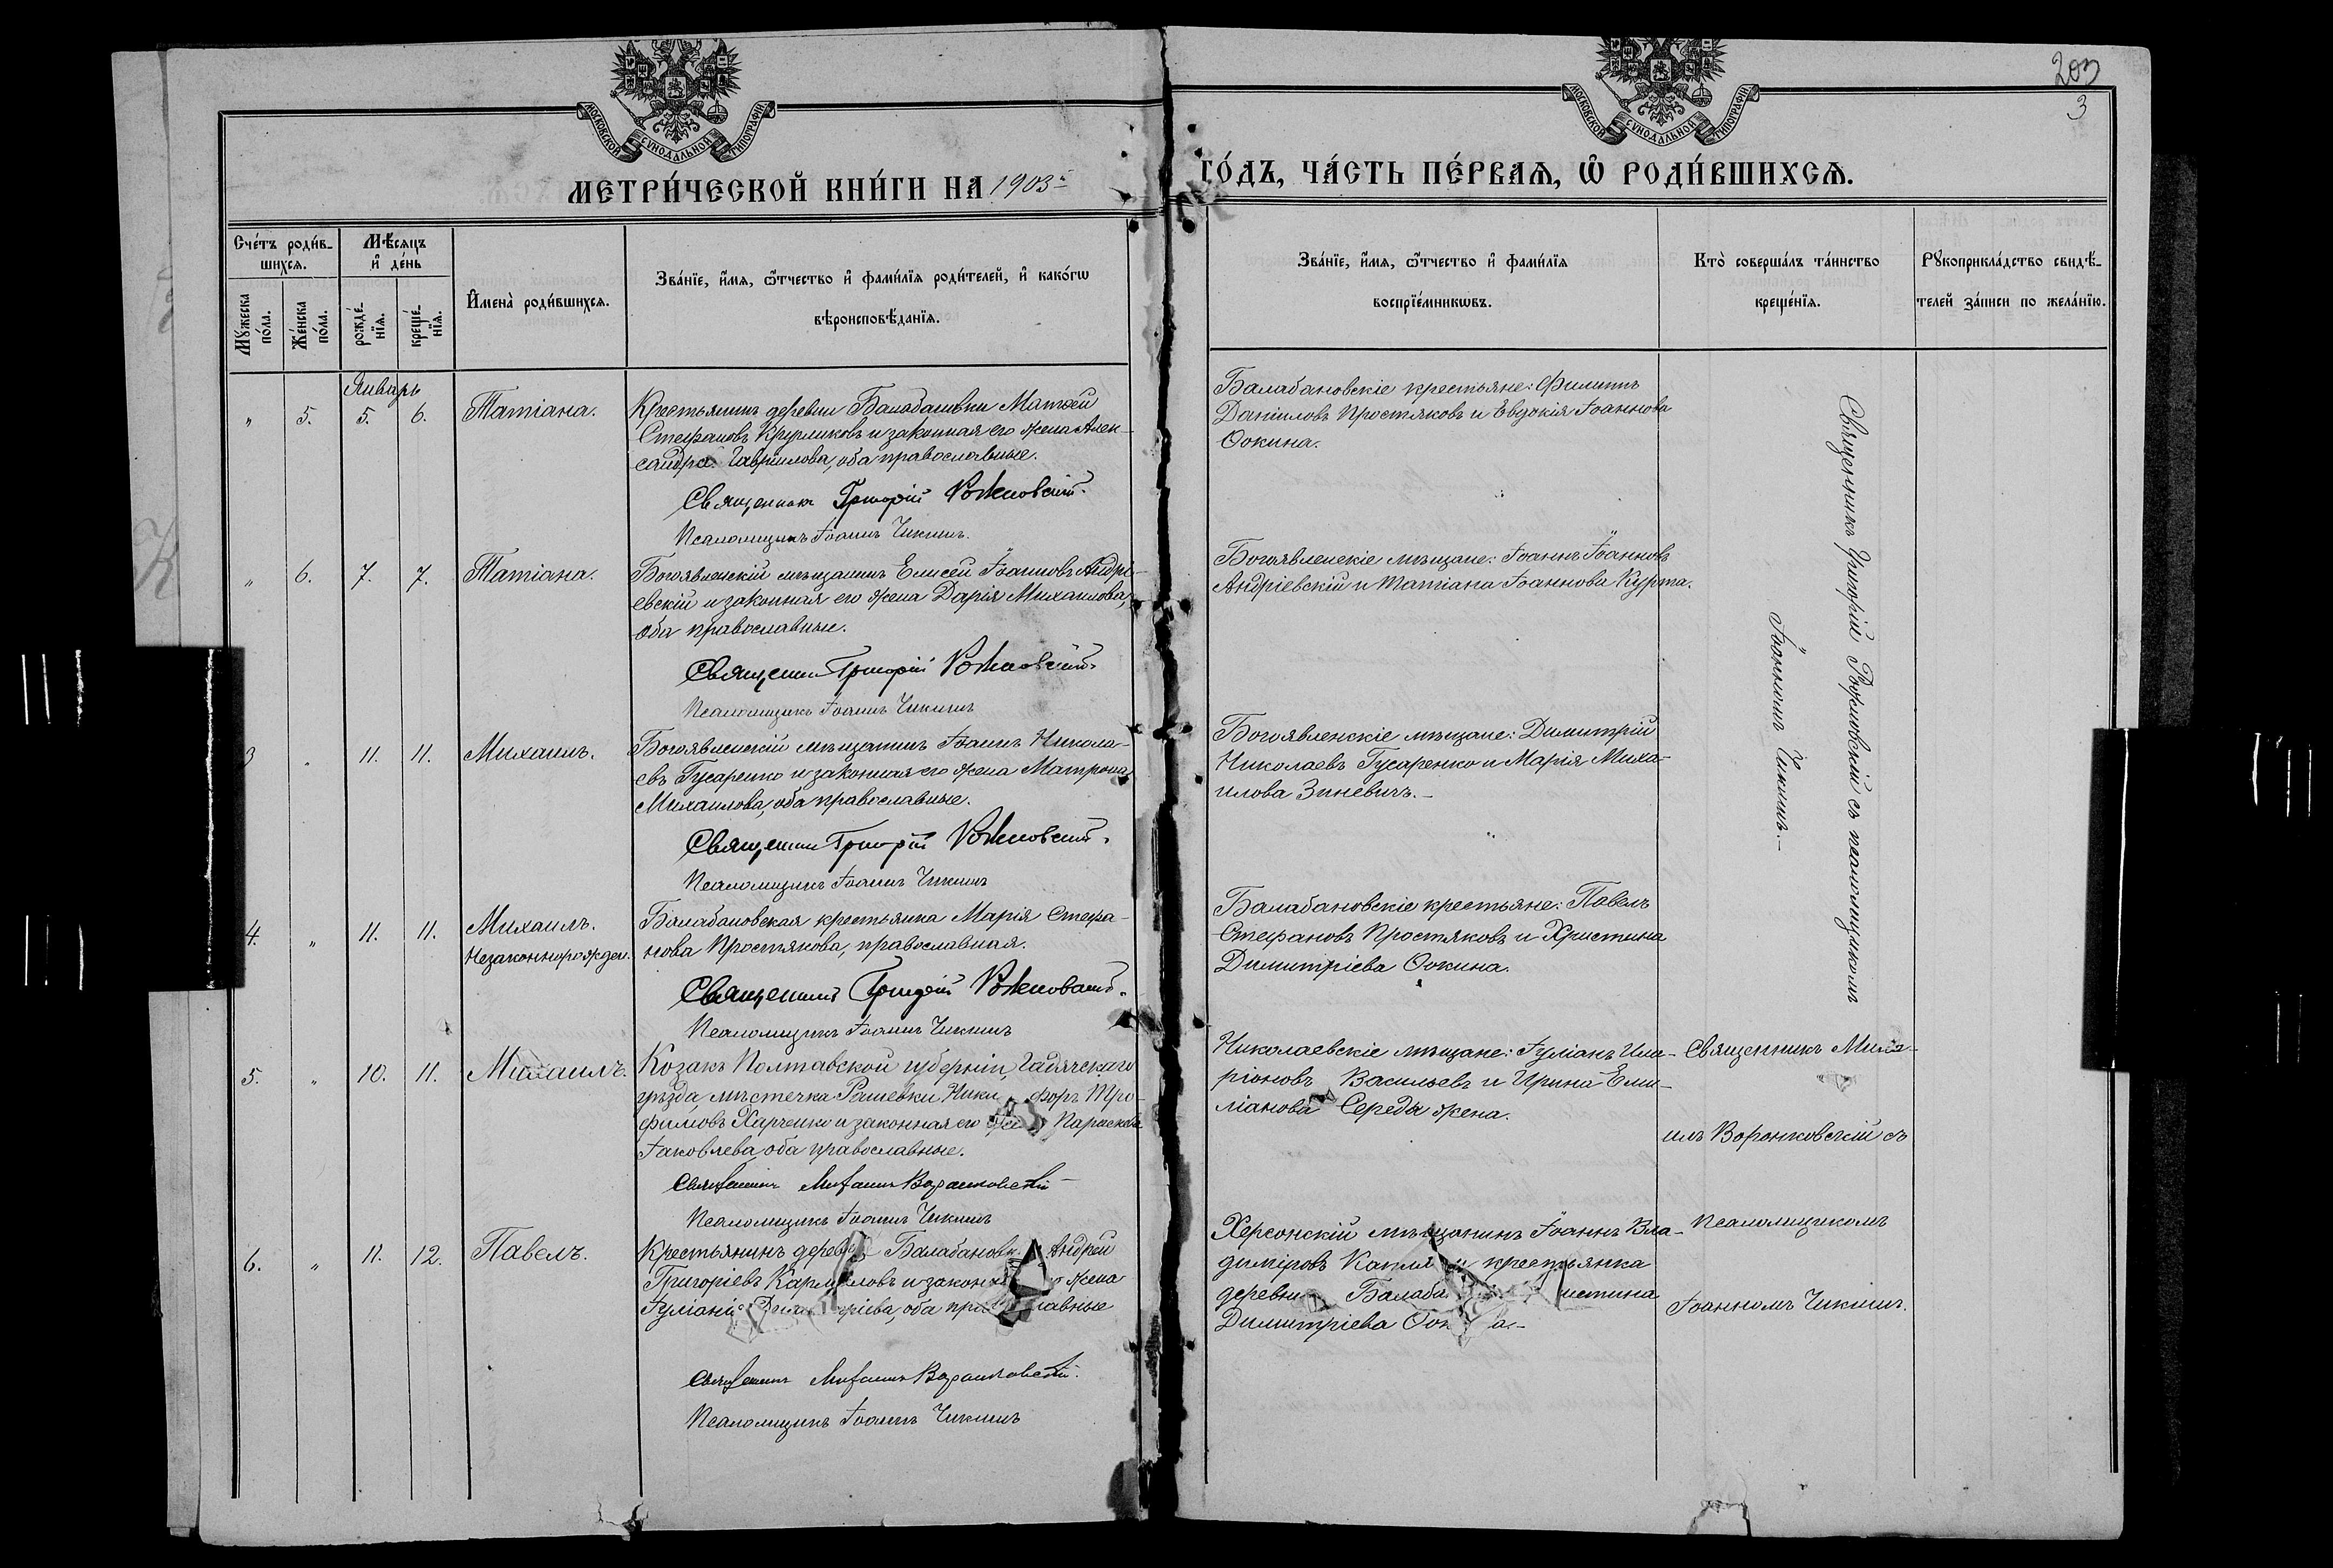 203
3
МОСКОВСКОЙ СУНОДАЛЬНОЙ ТИПОГРАФІИ
МОСКОВСКОЙ СУНОДАЛЬНОЙ ТИПОГРАФІИ
МЕТРИ́ЧЕСКОЙ КНИ́ГИ НА 1903 ГО́ДЪ, ЧА́СТЬ ПЕ́РВАѦ, Ѡ҆ РОДИ́ВШИХСѦ.
Сче́тъ роди́в-
шихсѧ.
Мꙋ́жеска по́ла.
Же́нска по́ла.
Мѣ́сѧцъ
и҆ де́нь
рожде́-
нїѧ.
креще́-
нїѧ.
И҆мена̀ роди́вшихсѧ.
Зва́нїе, и҆́мѧ, ѻ҆́тчество и҆ фами́лїѧ роди́телей, и҆ како́гѡ
вѣроисповѣ́данїѧ.
Зва́нїе, и҆́мѧ, ѻ҆́тчество и҆ фами́лїѧ
воспрїе́мникѡвъ.
Кто̀ соверша́лъ та́инство
креще́нїѧ.
Рꙋкоприкла́дство свидѣ́-
телей за́писи по жела́нїю.
Январь
" 5. 5. 6. Татіана.
Крестьянинъ деревни Балабановки Матѳей
Стефановъ и законная его жена Алек-
сандра Гавріилова, оба православные.
Священникъ Григорій Рожновскій.
Псаломщикъ Іоаннъ Чикинъ.
Балабановскіе крестьяне: Филиппъ
Даніиловъ Простяковъ и Евдокія Іоаннова
Ѳокина.
" 6. 7. 7. Татіана.
Богоявленскій мѣщанинъ Елисей Іоанновъ Андрі-
евскій и законная его жена Дарія Михаилова,
оба православные.
Священникъ Григорій Рожновскій.
Псаломщикъ Іоаннъ Чикинъ
Богоявленскіе мѣщане: Іоаннъ Іоанновъ
Андріевскій и Татіана Іоаннова Курта.
3 " 11. 11. Михаилъ.
Богоявленскій мѣщанинъ Іоаннъ Никола-
евъ Гусаренко и законная его жена Матрона
Михаилова, оба православные.
Священникъ Григорій Рожновскій.
Псаломщикъ Іоаннъ Чикинъ
Богоявленскіе мѣщане: Димитрій
Николаевъ Гусаренко и Марія Миха-
илова Зиневичъ.-
4. " 11. 11. Михаилъ.
Незаконнорожден.
Балабановская крестьянка Марія Стефа-
нова Простякова, православная.
Священникъ Григорій Рожновскій.
Псаломщикъ Іоаннъ Чикинъ
Балабановскіе крестьяне: Павелъ
Стефановъ Простяковъ и Христина
Димитріева Ѳокина.
Священникъ Григорій Рожновскій съ псаломщикомъ
Іоанномъ Чикинъ.-
5. " 10. 11. Михаилъ.
Козакъ Полтавской губерніи, Гадячскаго
уѣзда, мѣстечка Рашевки Ники форъ Тро-
фимовъ Харченко и законная его Параскева
Іаковлева, оба православные.
Священникъ Михаилъ Воронковскій
Псаломщикъ Іоаннъ Чикинъ
Николаевскіе мѣщане: Іуліанъ Ила-
ріоновъ Васильевъ и Ирина Еми-
ліанова Середы жена.
Священникъ Миха-
илъ Воронковскій съ
псаломщикомъ
Іоанномъ Чикинъ.
6. " 11. 12. Павелъ.
Крестьянинъ дерев Балабановк Андрей
Григоріевъ и закон жена
Іуліанія оба пра лавные
Священникъ Михаилъ Воронковскій.
Псаломщикъ Іоаннъ Чикинъ
Херсонскій мѣщанинъ Іоаннъ Вла-
диміровъ и крестьянка
деревни Балаба истина
Димитріева